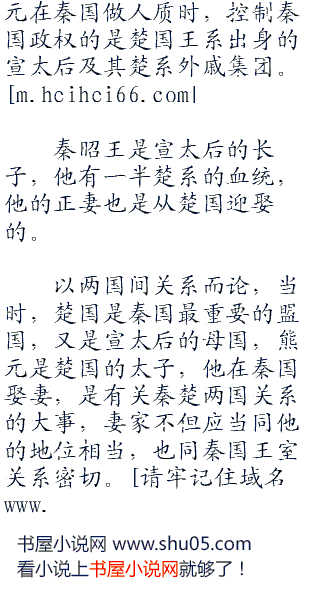 元在秦国做人质时，控制秦
国政权的是楚国王系出身的
宣太后及其楚系外戚集团。
[m.hcihci66.com]
秦昭王是宣太后的长
子，他有一半楚系的血统，
他的正妻也是从楚国迎娶
的。
以两国间关系而论，当
时，楚国是秦国最重要的盟
国，又是宣太后的母国，熊
元是楚国的太子，他在秦国
娶妻，是有关秦楚两国关系
的大事，妻家不但应当同他
的地位相当，也同秦国王室
关系密切。[请牢记住域名
www.
书屋小说网 www.shu05.com
看小说上书屋小说网就够了！